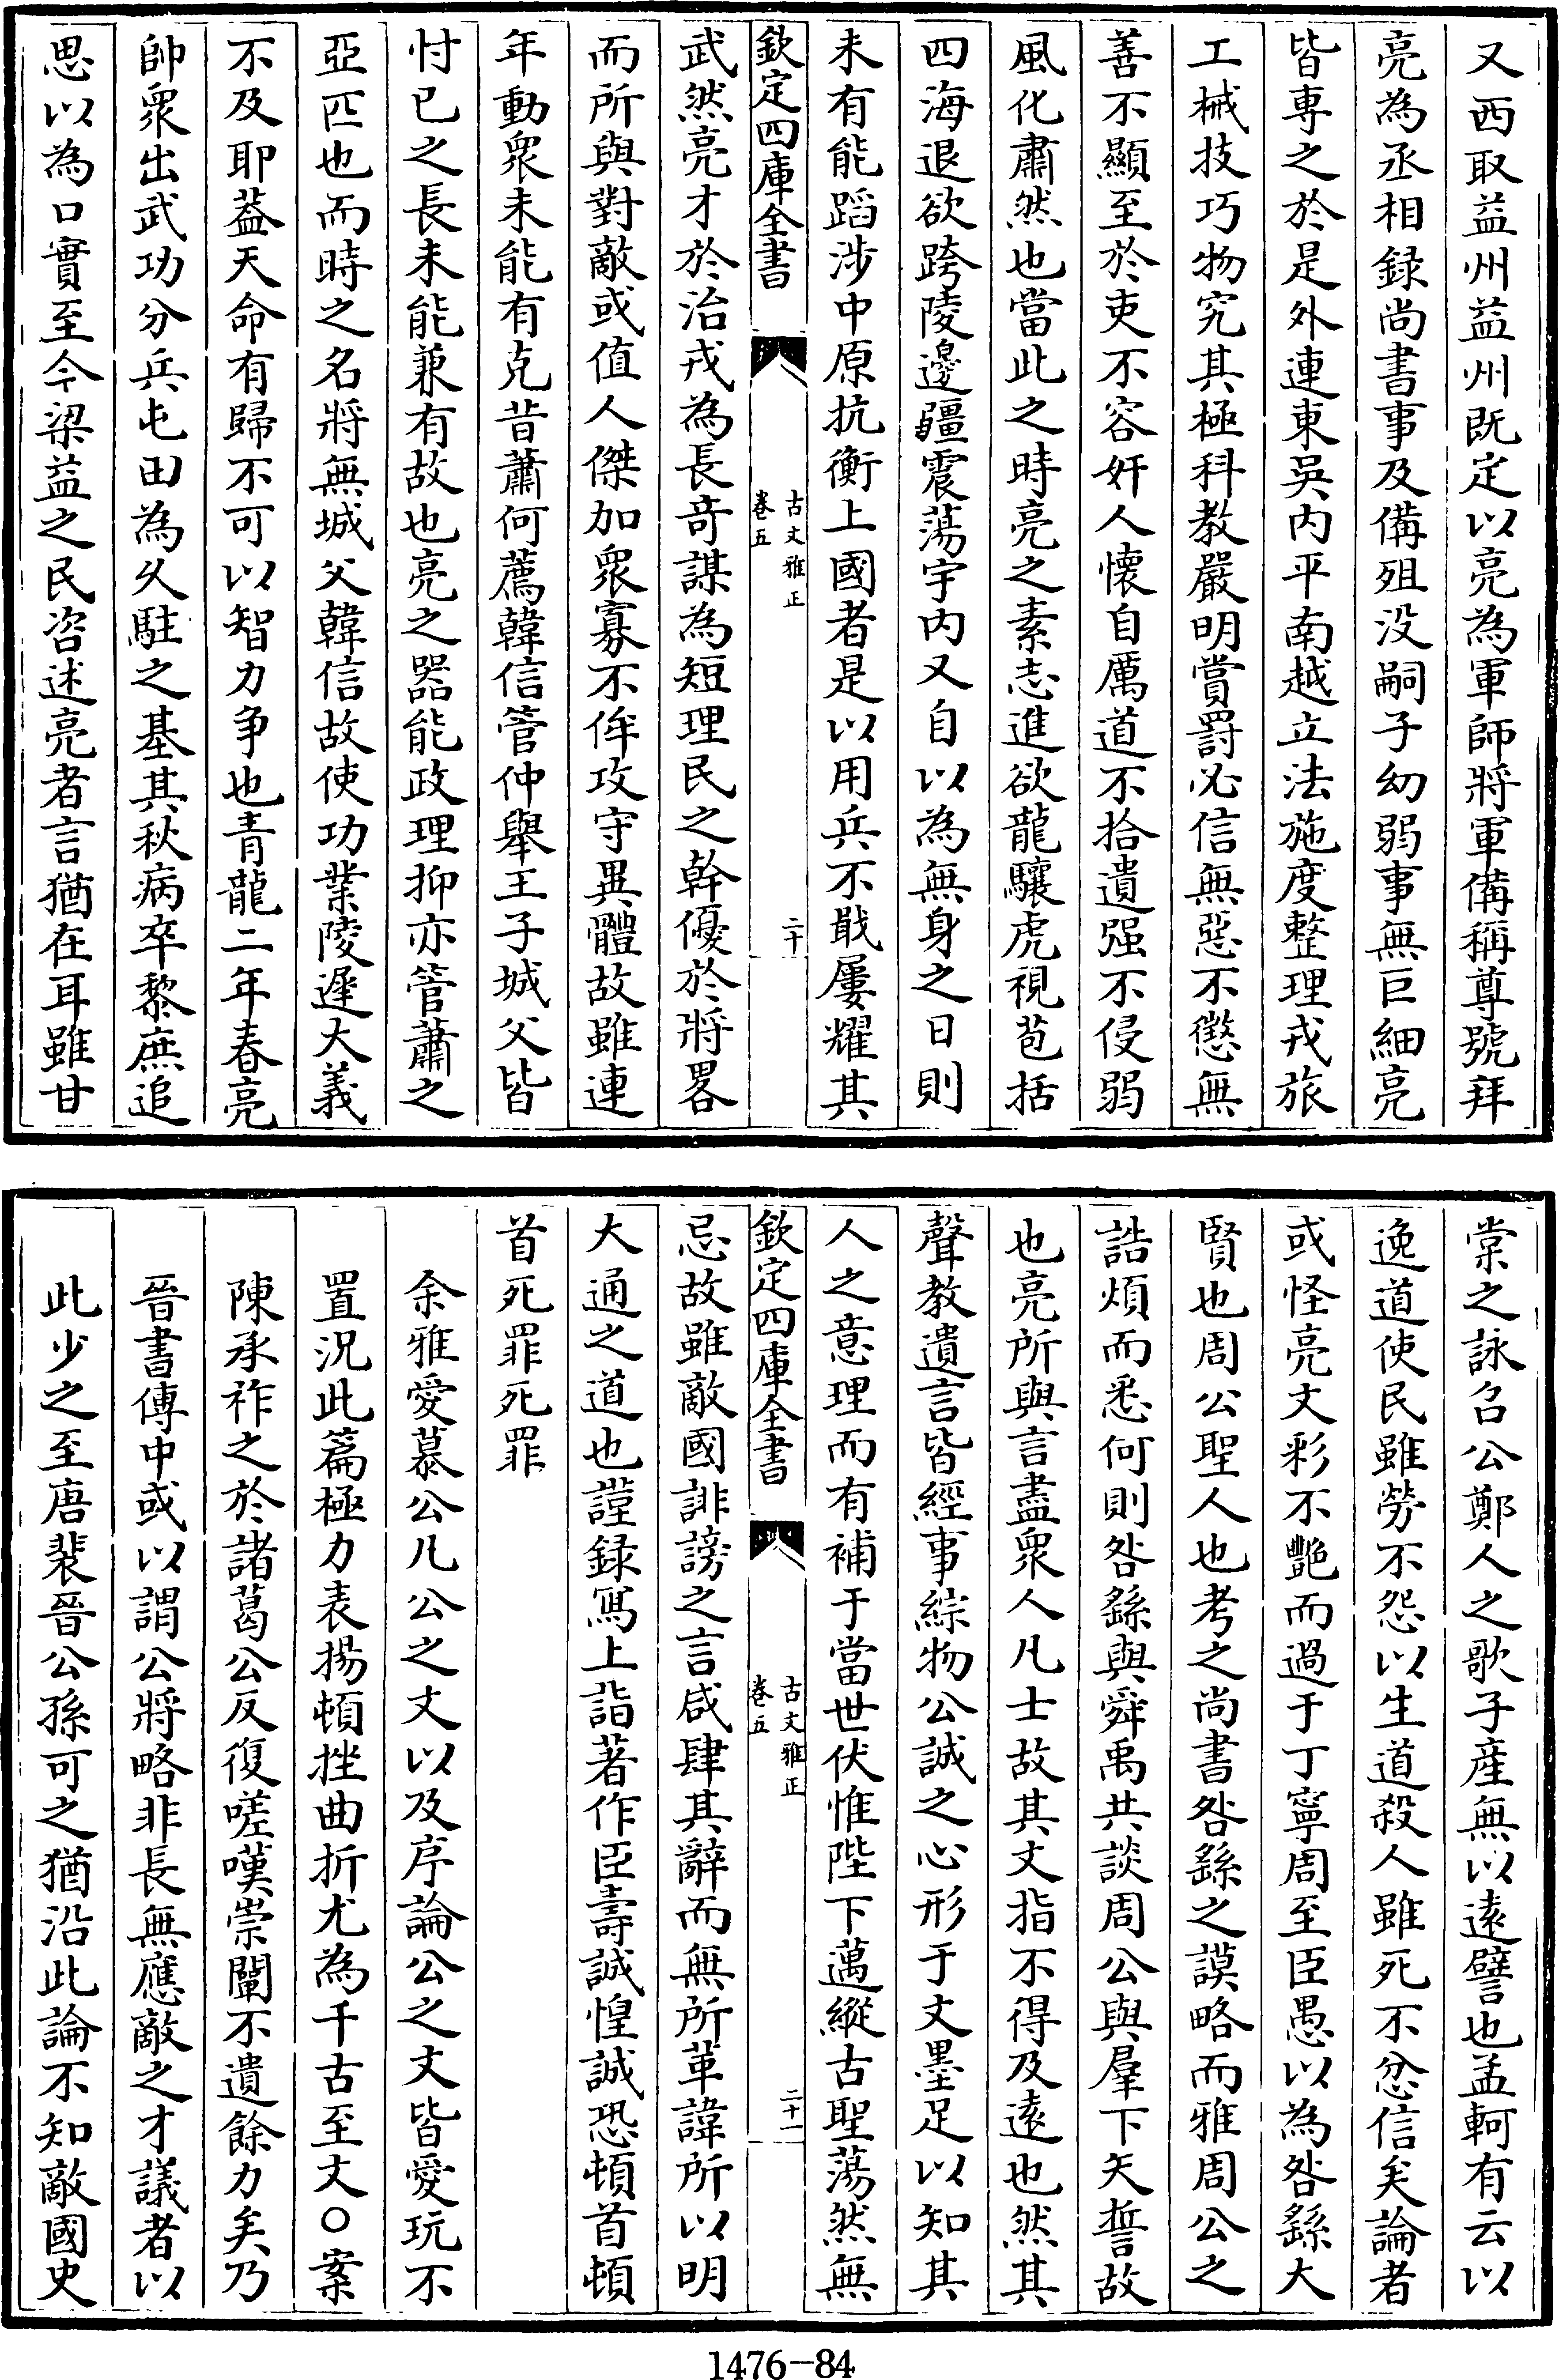 又西取益州益州既定以亮為軍師將軍備稱尊號拜
亮為丞相録尚書事及備殂没嗣子幼弱事無巨細亮
皆専之於是外連東吳内平南越立法施度整理戎旅
工械技巧物究其極科教嚴明賞罰必信無惡不懲無
善不顯至於吏不容奸人懷自厲道不拾遺强不侵弱
風化肅然也當此之時亮之素志進欲龍驤虎視苞括
四海退欲跨陵邊疆震蕩宇内又自以為無身之日則
未有能蹈涉中原抗衡上國者是以用兵不戢屢耀其
欽定四庫全書
古文雅正
卷五
二十
武然亮才於治戎為長竒謀為短理民之幹優於將畧
而所與對敵或值人傑加衆寡不侔攻守異體故雖連
年動衆未能有克昔蕭何薦韓信管仲舉王子城父皆
忖已之長未能兼有故也亮之器能政理抑亦管蕭之
亞匹也而時之名將無城父韓信故使功業陵遲大義
不及耶葢天命有歸不可以智力争也青龍二年春亮
帥衆出武功分兵屯田為久駐之基其秋病卒黎庶追
思以為口實至今梁益之民咨述亮者言猶在耳雖甘
棠之詠召公鄭人之歌子産無以遠譬也孟軻有云以
逸道使民雖勞不怨以生道殺人雖死不忿信矣論者
或怪亮文彩不艷而過于丁寧周至臣愚以為咎繇大
賢也周公聖人也考之尚書咎繇之謨略而雅周公之
誥煩而悉何則咎繇與舜禹共談周公與羣下矢誓故
也亮所與言盡衆人凡士故其文指不得及逺也然其
聲教遺言皆經事綜物公誠之心形于文墨足以知其
人之意理而有補于當世伏惟陛下邁縱古聖蕩然無
欽定四庫全書
古文雅正
卷五
二十一
忌故雖敵國誹謗之言咸肆其辭而無所革諱所以明
大通之道也謹録寫上詣著作臣壽誠惶誠恐頓首頓
首死罪死罪
余雅愛慕公凡公之文以及序論公之文皆愛玩不
置況此篇極力表揚頓挫曲折尤為千古至文○案
陳承祚之於諸葛公反復嗟嘆崇闡不遺餘力矣乃
晉書傳中或以謂公將略非長無應敵之才議者以
此少之至唐裴晉公孫可之猶沿此論不知敵國史
1476-84